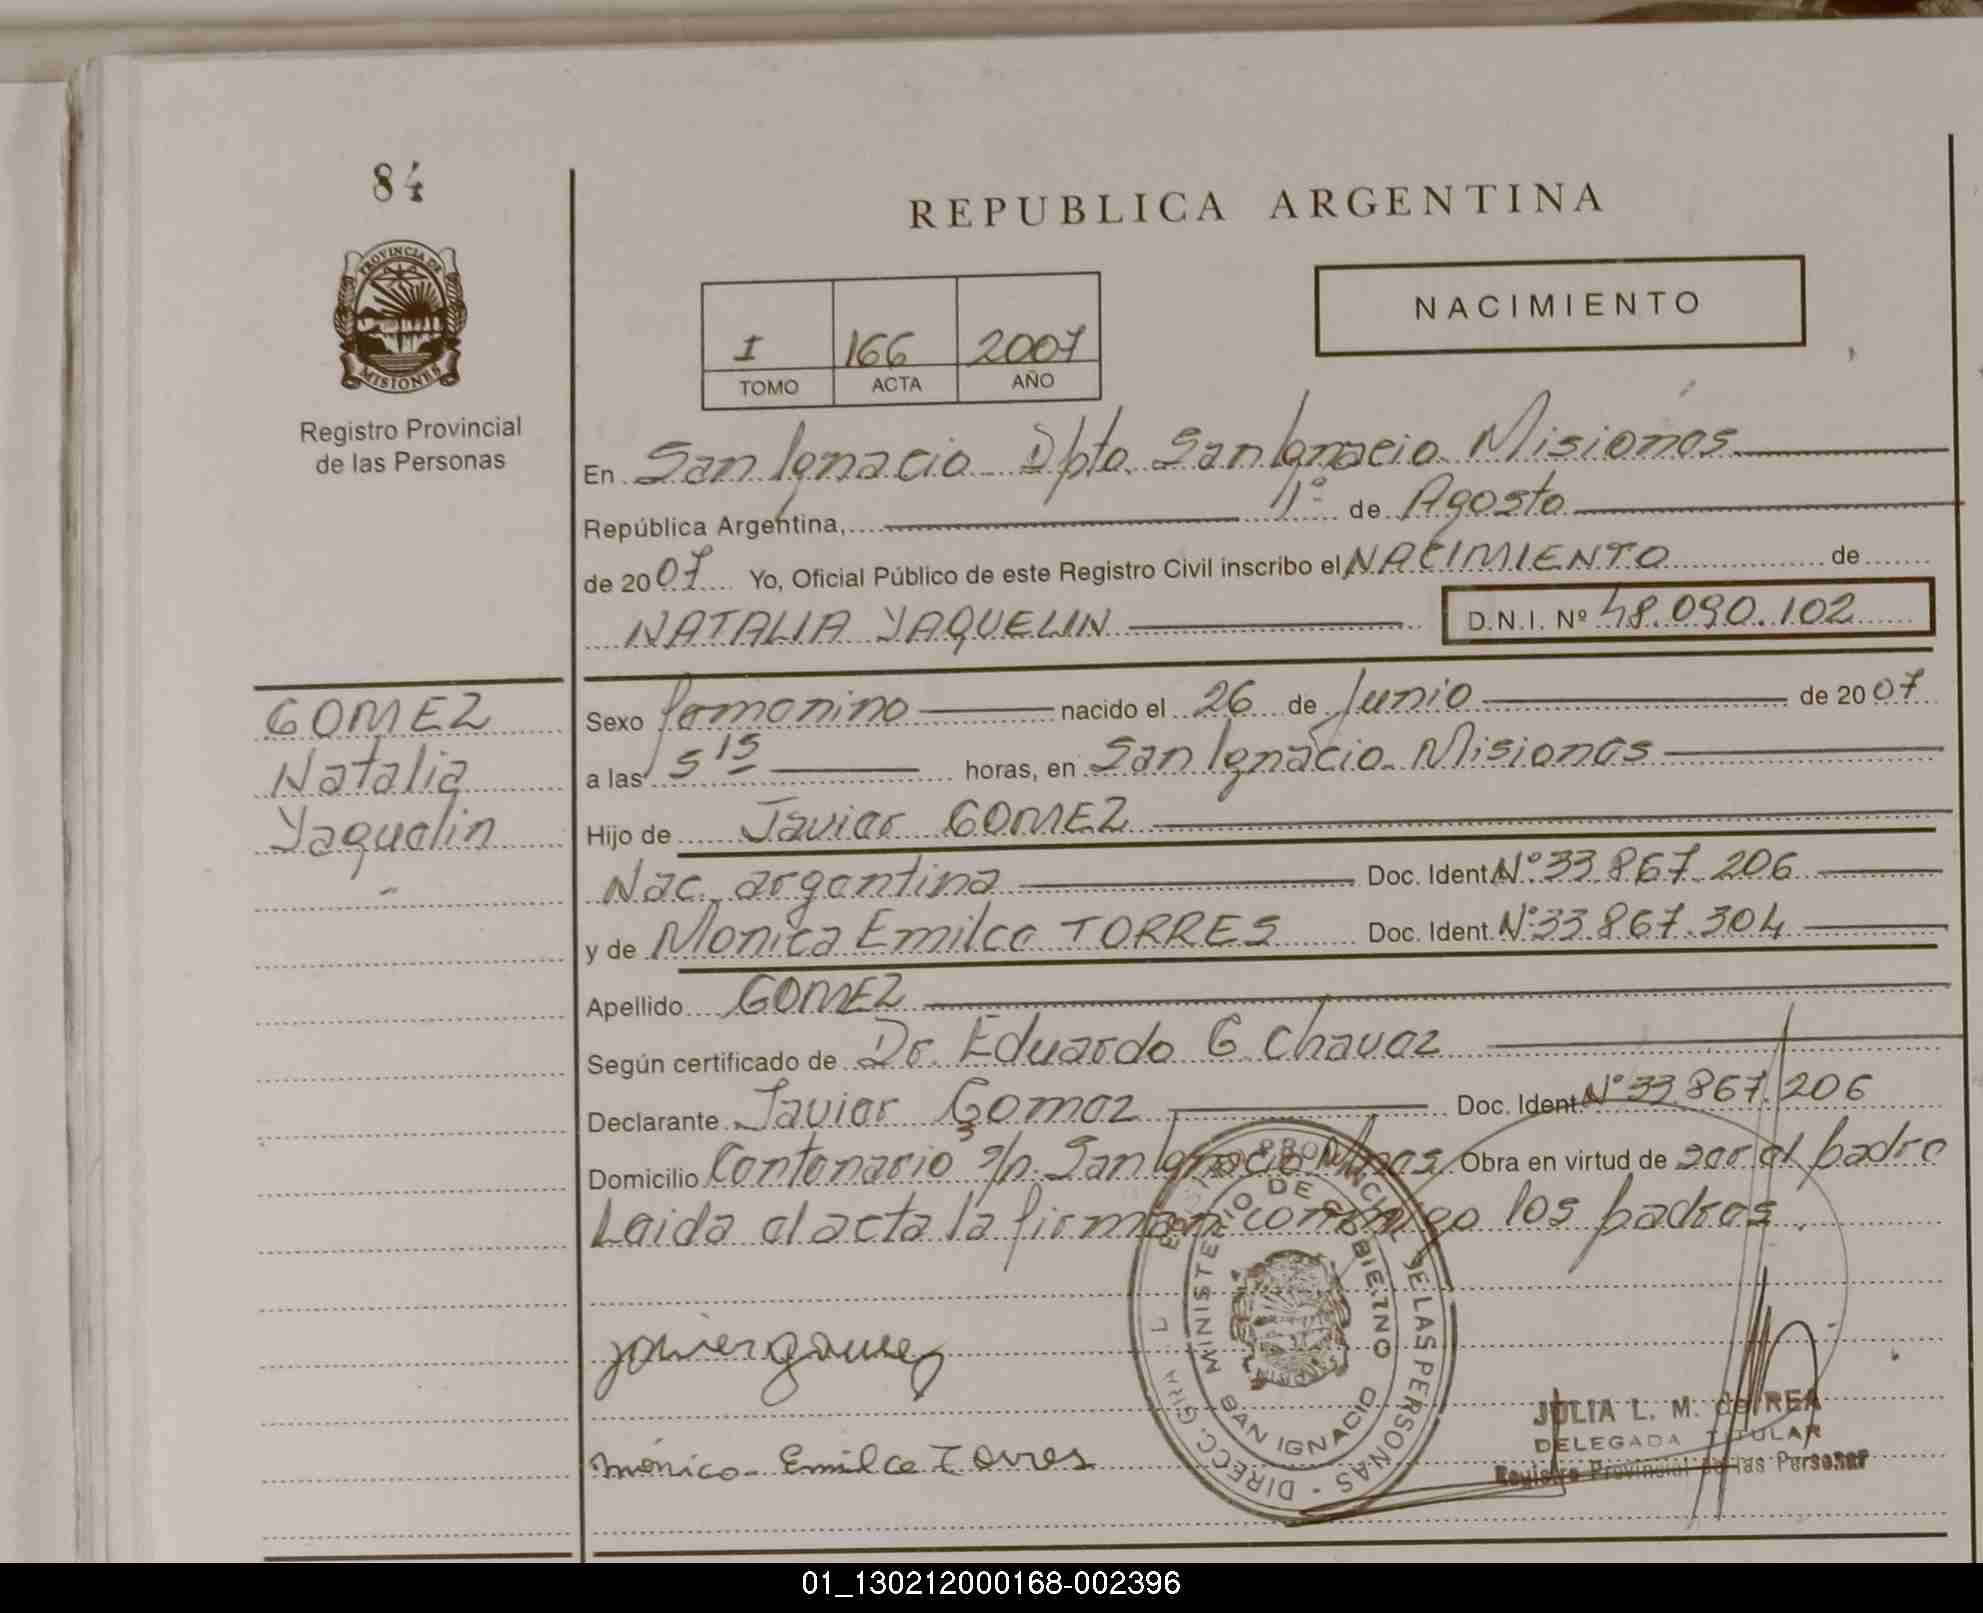 84
REPUBLICA ARGENTINA
PROVINCIA DE
MISIONES
Registro Provincial
de las Personas
I 166 2007
TOMO ACTA AÑO
NACIMIENTO
En San Ignacio Dpto. San Ignacio Misiones
República Argentina, 1° de Agosto
de 2007 Yo, Oficial Público de este Registro Civil inscribo el NACIMIENTO de
NATALIA YAQUELIN D.N.I. Nº 48.090.102
GOMEZ
Natalia
Yaquelin
Sexo femenino nacido el 26 de Junio de 2007
a las 5 15 horas, en San Ignacio Misiones
Hijo de Javier GOMEZ
Nac. argentina Doc. Ident Nº 33.867.206
y de Monica Emilce TORRES Doc. Ident. Nº 33.867.304
Apellido GOMEZ
Según certificado de Dr. Eduardo G Chavez
Declarante Javier Gomez Doc. Ident. Nº 33.867.206
Domicilio Centenario s/n. San Ignacio Mnes Obra en virtud de ser el padre
Leida el acta la firman conmigo los padres.
javier gomez
monica Emilce Torres
MINISTERIO DE GOBIERNO
SAN IGNACIO
PROVINCIAL DE LAS PERSONAS - DIRECC. GRAL
JULIA L. M. de REA
DELEGADA TITULAR
Registro Provincial de las Personas
01_130212000168-002396